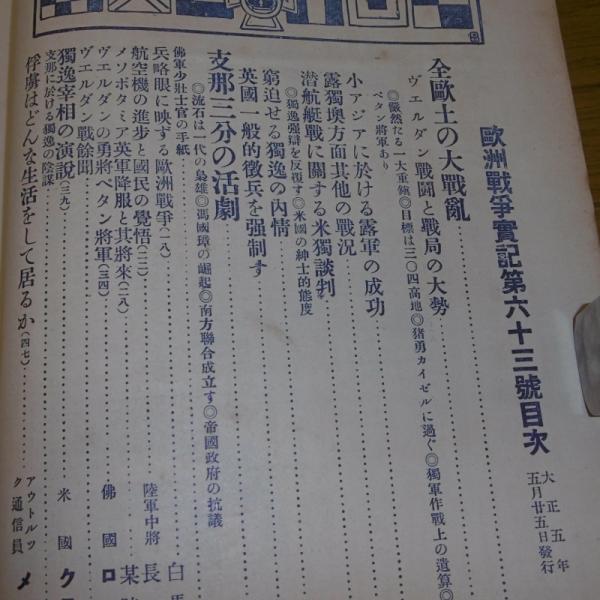 歐洲戰爭實記第六十三號目次
大正五年
五月廿五日發行
全歐土の大戰亂
ヴェルダン戰鬪と戰局の大勢
◎儼然たる一大重鎭◎目標は三〇四高地◎猪勇カイゼルに過ぐ◎獨軍作戰上の違算◎
ペタン將軍あり
小アジアに於ける露軍の成功
露獨墺方面其他の戰況
潜航艇戰に關する米獨談判
◎獨逸强辯を反復す◎米國の紳士的態度
窮迫せる獨逸の內情
英國一般的徵兵を强制す
支那三分の活劇
◎流石は一代の梟雄◎馮國璋の崛起◎南方聯合成立す◎帝國政府の抗議
佛軍少壯士官の手紙
兵略眼に映する歐洲戰爭(一八) 白
航空機の進步と國民の覺悟(二二) 陸軍中將 長
メソポタミア英軍降服と其將來(二八) 某
ヴエルダンの勇將ペタン將軍(三四) 佛國 ロ
ヴエルダン戰餘聞
獨逸宰相の演說(三九) 米國 ク
支那に於ける獨逸の陰謀
俘虜はどんな生活をして居るか(四七) アウトルック通信員 メ